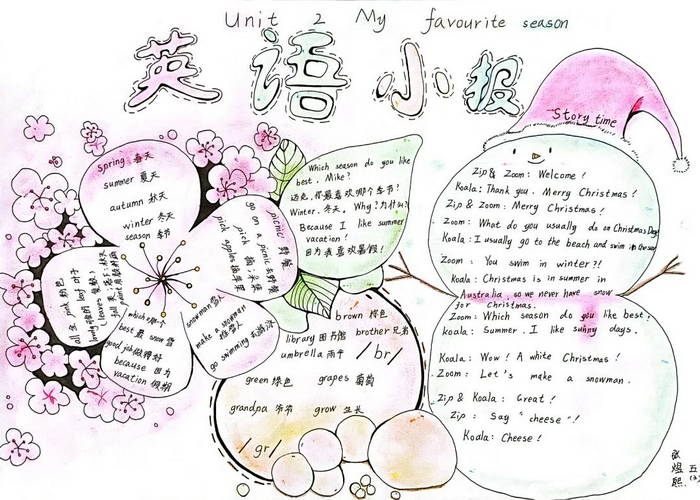 Unit 2 My favourite season
英语小报
Story time
spring 春天
summer 夏天
autumn 秋天
winter 冬天
season 季节
picnic 野餐
go on a picnic 去野餐
pick 摘;采集
pick apples 摘苹果
snowman 雪人
make a snowman
堆雪人
go swimming 去游泳
which 哪个
best 最 snow 雪
good job 做得好
because 因为
vacation 假期
pink 粉色
leaf 叶子
Which season do you like
best, Mike?
迈克,你最喜欢哪个季节?
Winter. 冬天。 Why? 为什么?
Because I like summer
vacation!
因为我喜欢暑假!
brown 棕色
library 图书馆 brother 兄弟
umbrella 雨伞 /br/
green 绿色 grapes 葡萄
grandpa 爷爷 grow 生长
/gr/
Zip & Zoom: Welcome!
Koala: Thank you. Merry Christmas!
Zip & Zoom: Merry Christmas!
Zoom: What do you usually do on Christmas Day?
Koala: I usually go to the beach and swim in the sea.
Zoom: You swim in winter?!
Koala: Christmas is in summer in
Australia, so we never have snow
for Christmas.
Zoom: Which season do you like best?
koala: Summer. I like sunny days.
Koala: Wow! A white Christmas!
Zoom: Let's make a snowman.
Zip & Koala: Great!
Zip: Say "cheese"!
Koala: Cheese!